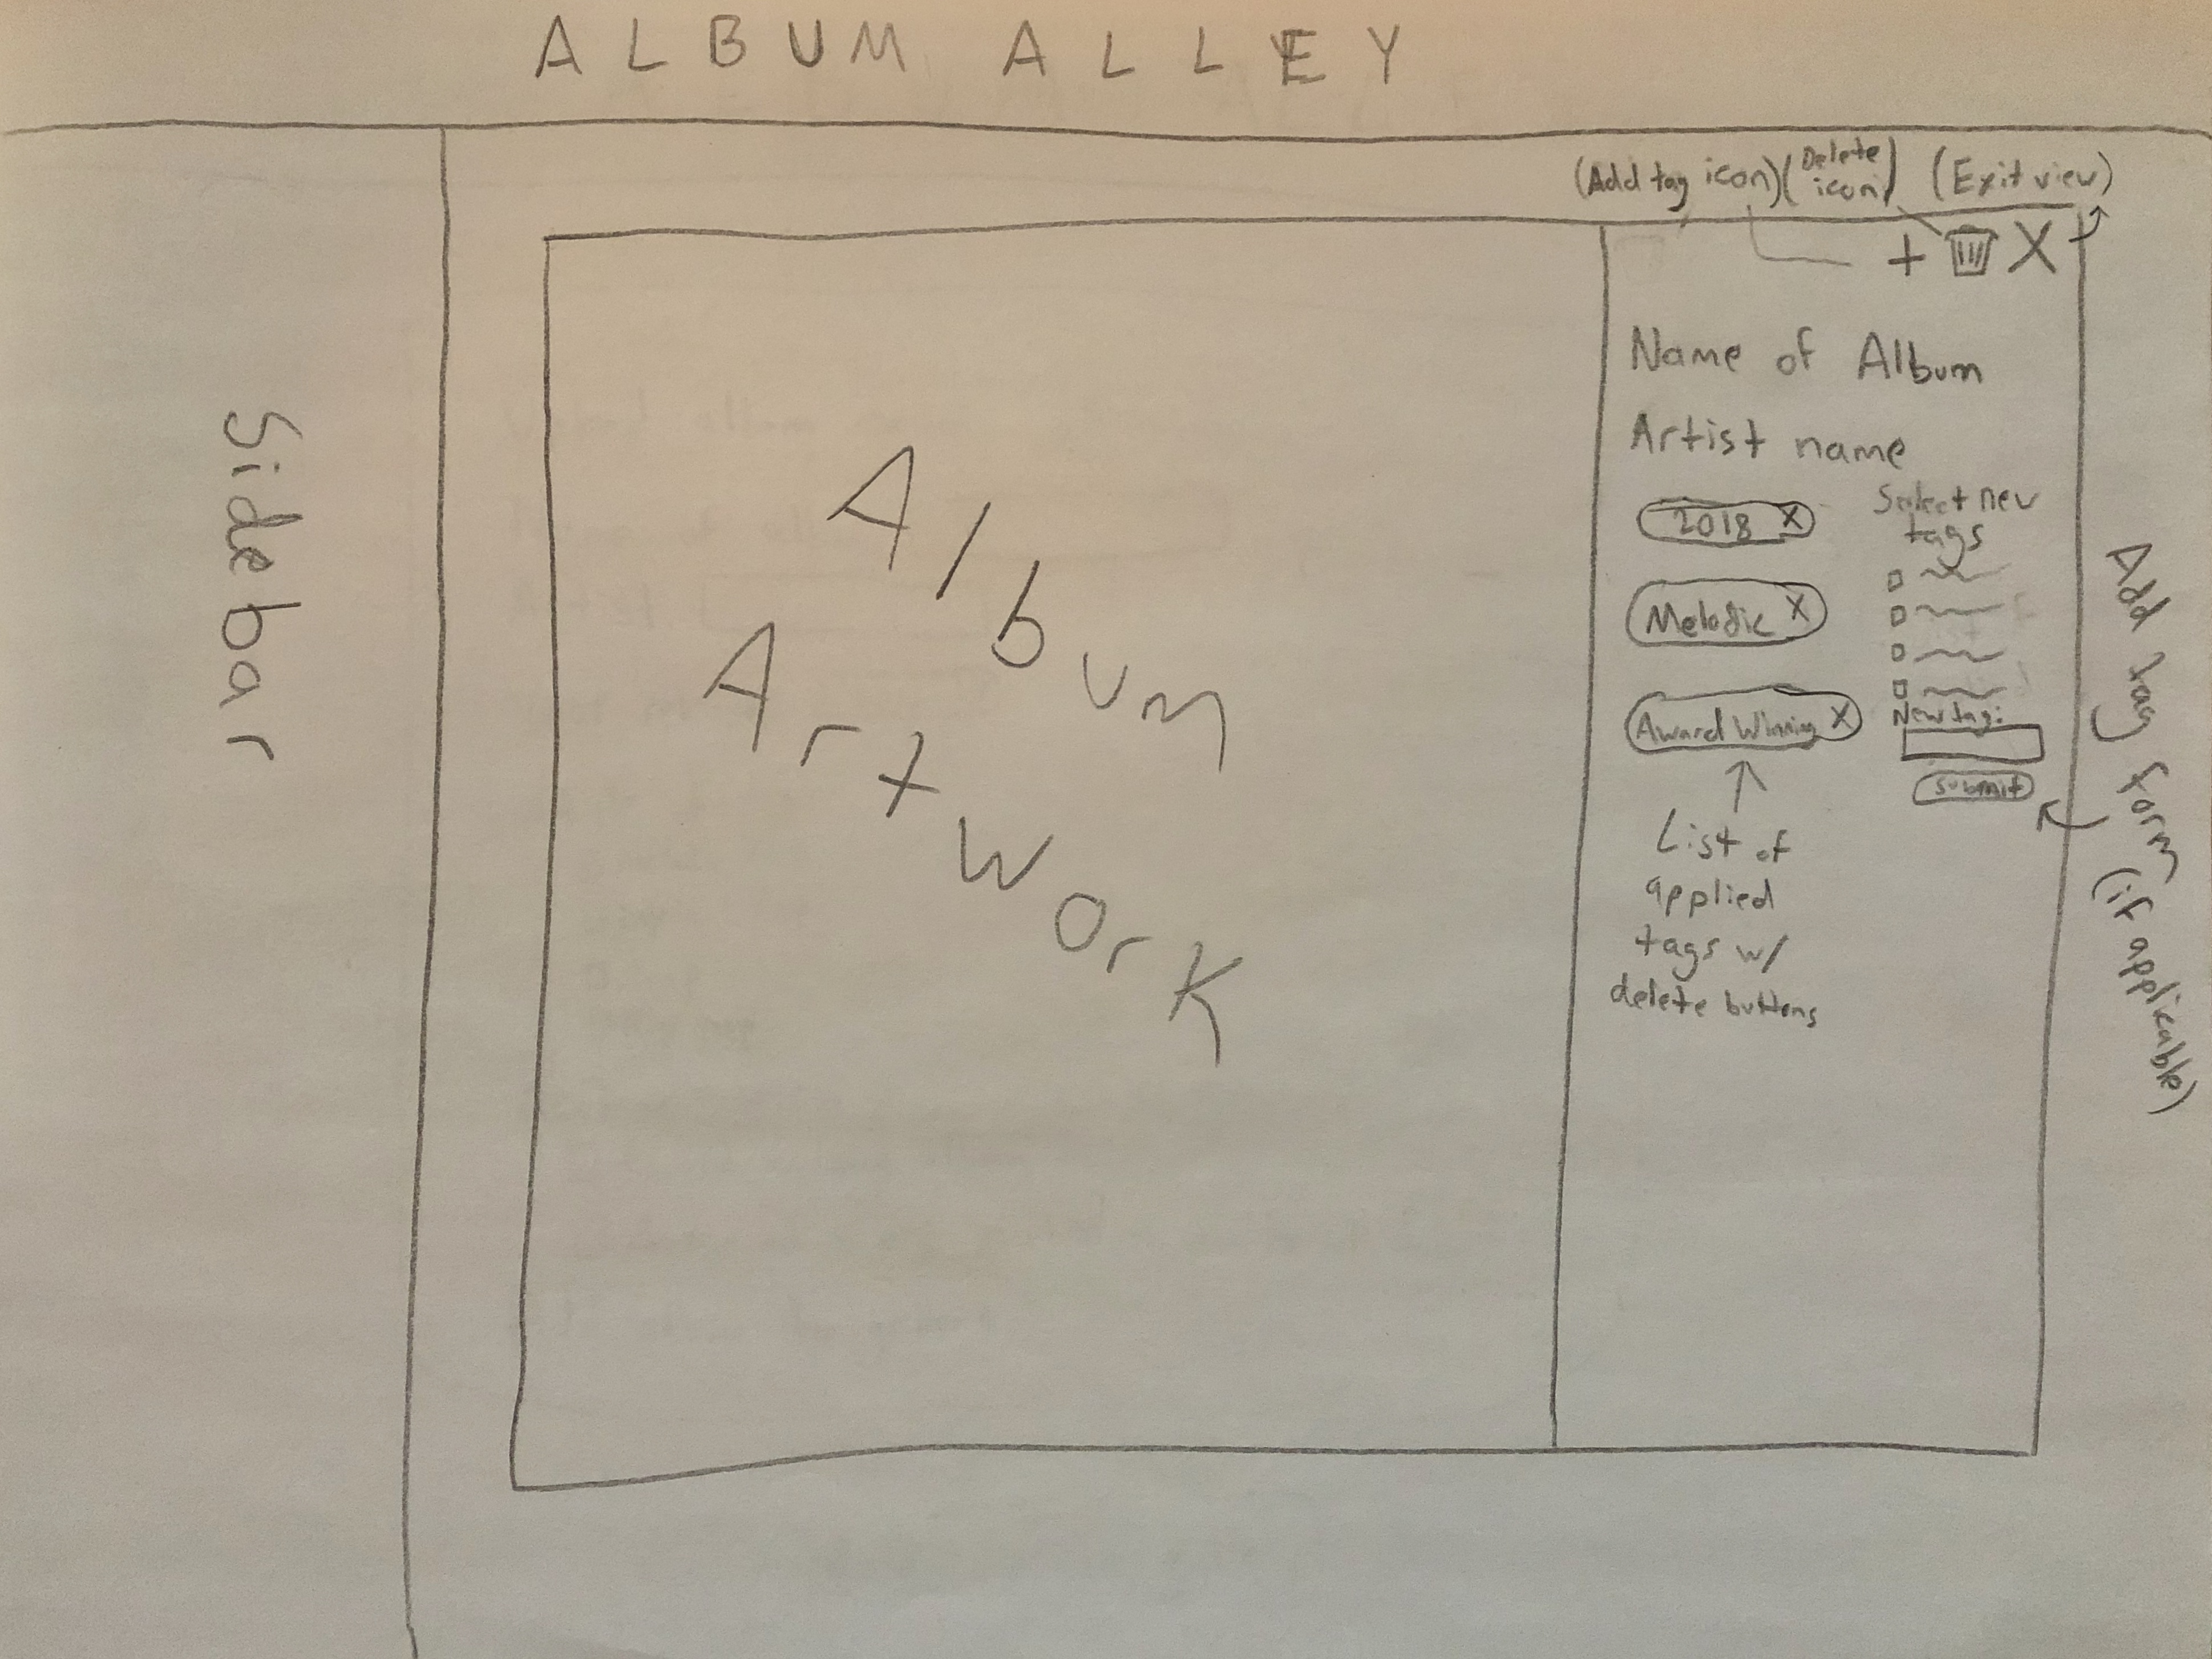 ALBUM ALLEY
(Add tag icon) (Delete icon) (Exit view)
+ X
Sidebar
Album
Artwork
Name of Album
Artist name
2018 X
Melodic X
Award Winning X
List of
applied
tags w/
delete buttons
Select new
tags
New tag:
submit
Add tag form (if applicable)